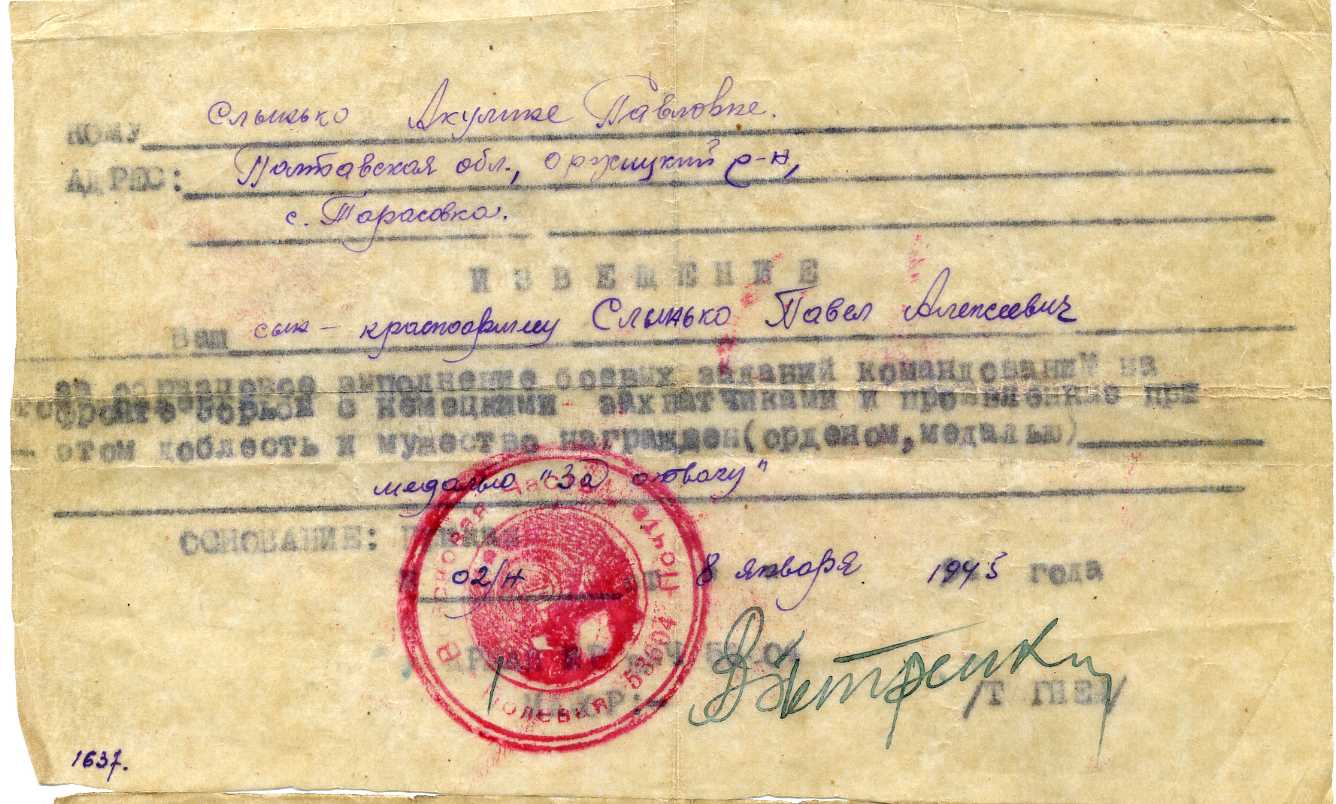 КОМУ Слынько Акулине Павловне.
АДРЕС: Полтавская обл., оржицкий р-н,
с. Тарасовка.
ИЗВЕЩЕНИЕ
Ваш сын - красноармеец Слынько Павел Алексеевич
за образцовое выполнение боевых заданий командований на
фронте борьбы с немецкими захватчиками и проявленные при
этом доблесть и мужество награжден(орденом,медалью)
медалью "За отвагу"
ОСНОВАНИЕ: Приказ
02/н от 8 января 1945 года
Полевая Почта 53604
1637.